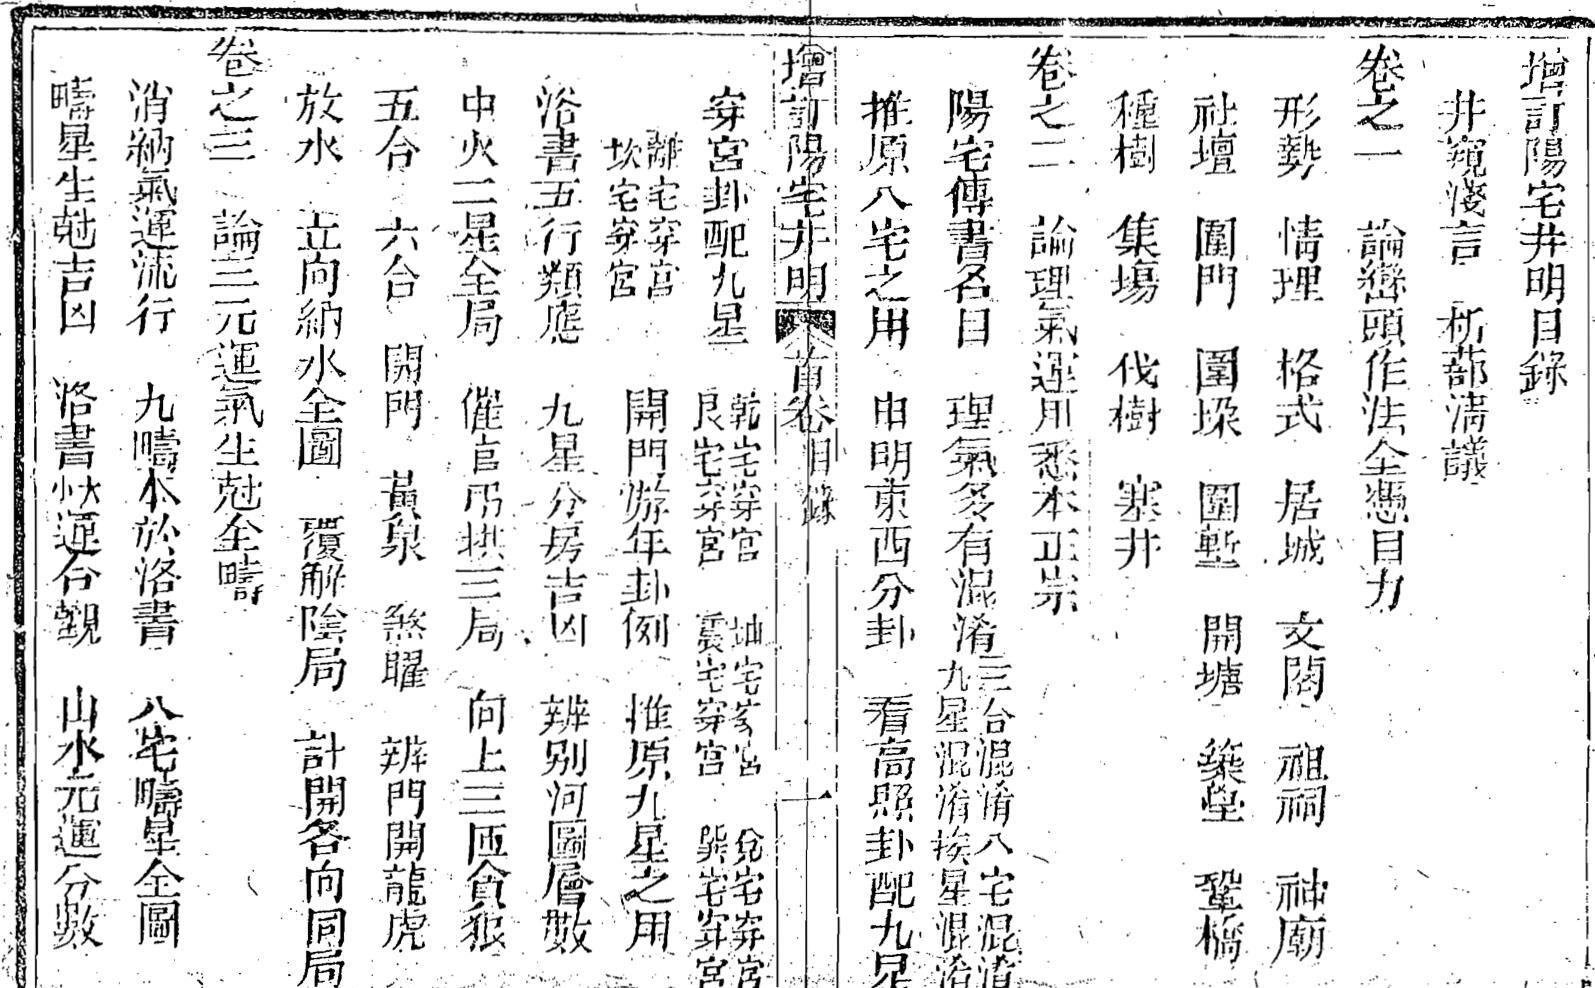 增訂陽宅井明目錄
井窺淺言 析蔀淸議
卷之一 論巒頭作法全憑目力
形勢 情理 格式 居城 文閣 祖祠 神廟
社壇 圍門 圍垛 圍塹 開塘 築壆 鞏橋
種樹 集塲 伐樹 塞井
卷之二 論理氣運用悉本正宗
陽宅傳書名目 理氣多有混淆 三台混淆 八宅混淆 九星混淆 挨星混淆
推原八宅之用 申明東西分卦 看高照卦配九星
增訂陽宅井明 首卷 目錄 一
穿宮卦配九星 乾宅穿宮 坤宅穿宮 兌宅穿宮 艮宅穿宮 震宅穿宮 巽宅穿宮
離宅穿宮 坎宅穿宮 開門游年卦例 推原九星之用
洛書五行類應 九星分房吉凶 辨别河圖層數
中火二星全局 催官吊拱三局 向上三匝貪狼
五合 六合 開門 黃泉 煞曜 辨門開龍虎
放水 立向納水全圖 覆解陰局 計開各向同局
卷之三 論三元運氣生尅全疇
消納氣運流行 九疇本於洛書 八宅疇星全圖
疇星生尅吉凶 洛書大小運合觀 山水元運分數